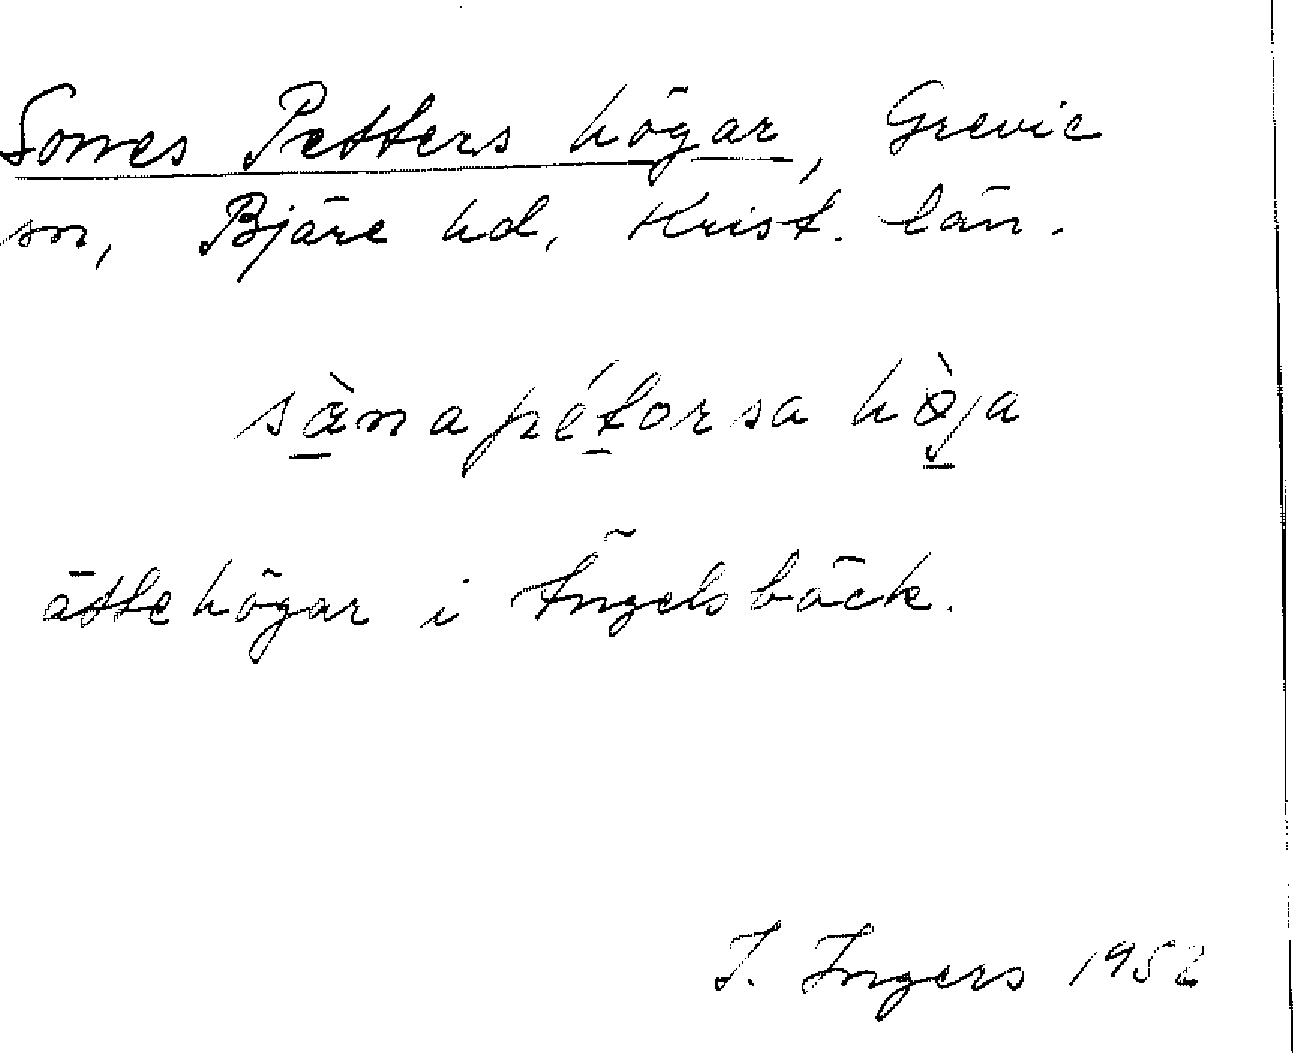 Sonnes Petters högar, Grevie
sn, Bjäre hd, Krist. län.
sæ̀na pétorsa hø̀ja
ättehögar i Ängelsbäck.
I. Ingers 1952